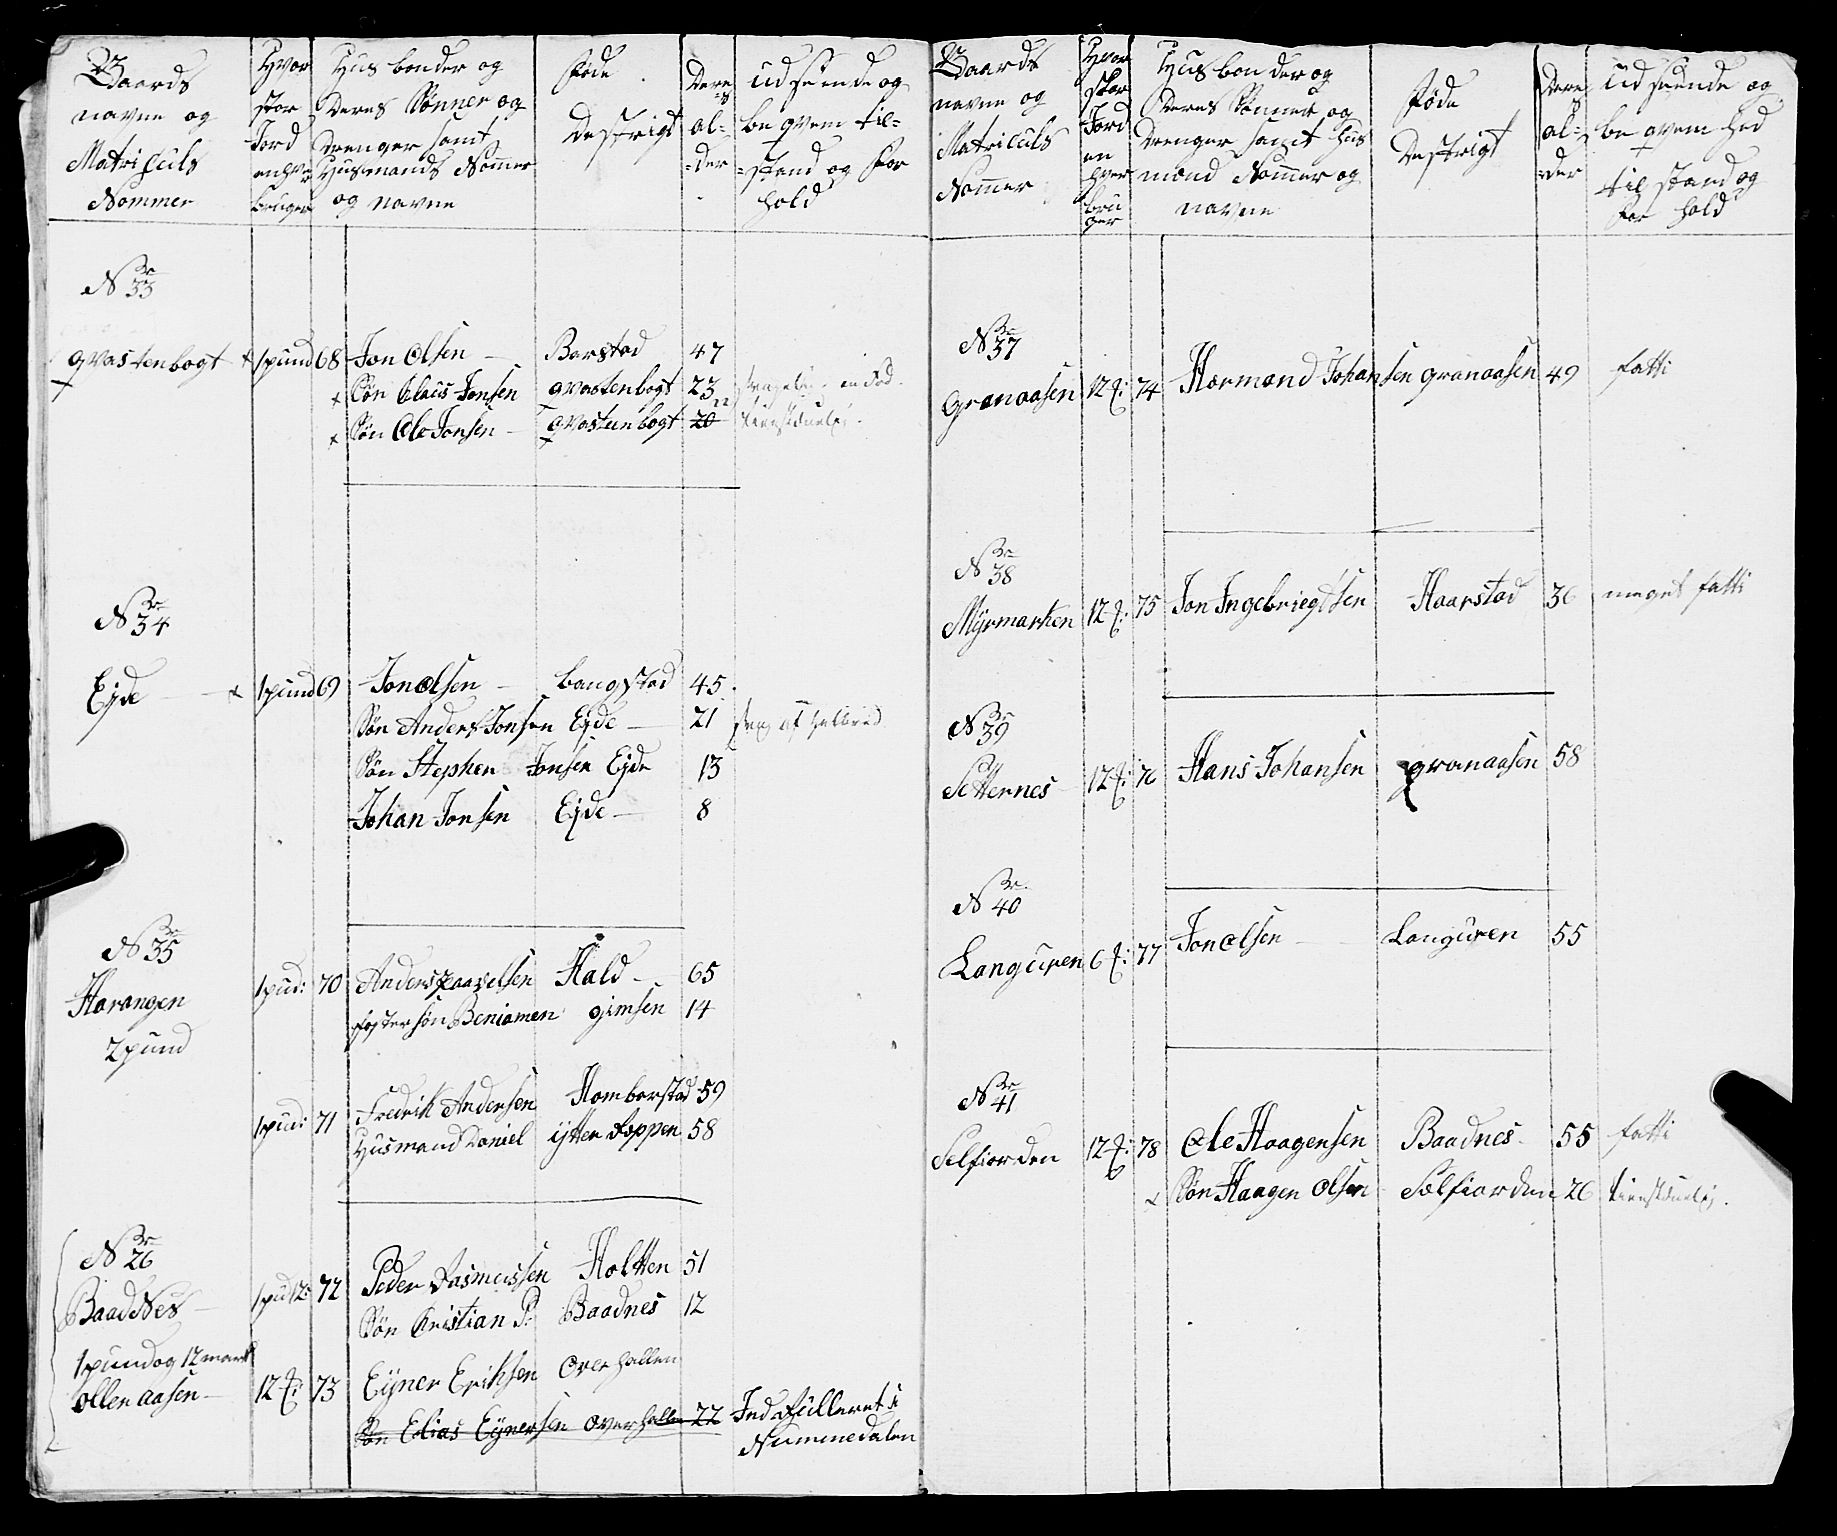 Gaards navne og Matriculs Nommer
Hvor stor Jord enhver bruger
Husbonder og Deres Sønner og Drenger samt Husmands Nommer og navne
Føde Destrigt
Deres al-der
Udseende og beqvem til-stand og forhold
No 33
Qvastenbogt 1pund 68 Jon Olsen Barstad 47
Søn Claus Jonsen Qvastenbogt 23
Søn Ole Jonsen Qvastenbogt 20 tienstduelig.
No 34
Ejde 1pund 69 Jon Olsen Bangstad 45
Søn Anders Jonsen Ejde 21
Søn Stephen Jonsen Ejde 13
Johan Jonsen Ejde 8
No 35
Harangen 1pud: 70 Anders Paavelsen Hald 65
2pund Foster søn Beniamen gimsen 14
1pud: 71 Fredrik Andersen Homborstad 59
Husmand Daniel ytter Foppen 58
No 26
BaadNes 1pud 12: 72 Peder Rasmussen Holtten 51
Søn Cristian P: Baadnes 12
1pund og 12 mark
ollen aasen 12 73 Ejner Eriksen Overhallen
Søn Elias Ejnersen overhallen 22 Indrulleret i
Nummedalen
Gaards navne og Matriculs Nommer
Hvor stor Jord en hver bruger
Husbonder og Deres Sønner og Drenger samt Husmænd Nommer og navne
Føde Destrigt
Deres al-der
Udseende og beqvemhed tilstand og forhold
No 37
Granaasen 12 74 Hormand Johansen granaasen 49 fatti
No 38
Myrmarken 12 75 Jon Ingebriegtsen Haarstad 36 meget fatti
No 39
Setternes 12 76 Hans Johansen granaasen 58
No 40
Languren 6 77 Jon Olsen Languren 55
No 41
Selfiorden 12 78 Ole Haagensen Baadnes 55 fatti
Søn Haagen Olsen Selfiorden 26 tienstduelig.